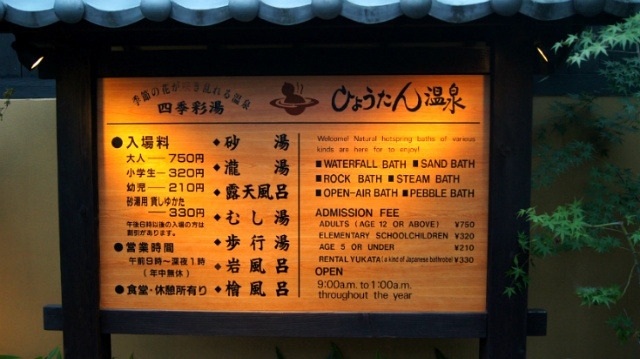 季節の花が咲き乱れる温泉
四季彩湯
ひょうたん温泉
●入場料
大人―750円
小学生―320円
幼児―210円
砂湯用 貸しゆかた
―330円
午後6時以後の入場の方は
割引があります。
●営業時間
午前9時〜深夜1時
(年中無休)
●食堂・休憩所有り
◆砂湯
◆瀧湯
◆露天風呂
◆むし湯
◆歩行湯
◆岩風呂
◆檜風呂
Welcome! Natural hotspring baths of various
kinds are here for to enjoy!
■WATERFALL BATH ■SAND BATH
■ROCK BATH ■STEAM BATH
■OPEN-AIR BATH ■PEBBLE BATH
ADMISSION FEE
ADULTS (AGE 12 OR ABOVE) ¥750
ELEMENTARY SCHOOLCHILDREN ¥320
AGE 5 OR UNDER ¥210
RENTAL YUKATA (a kind of Japanese bathrobe) ¥330
OPEN
9:00a.m. to 1:00a.m.
throughout the year